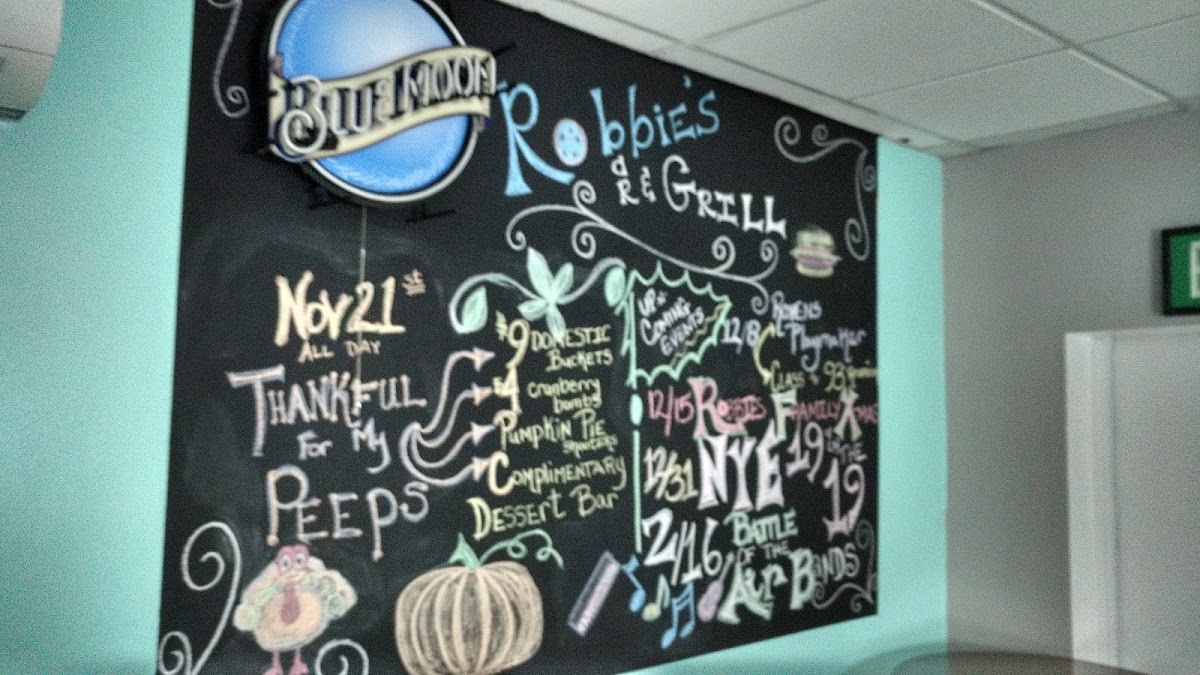 BLUE MOON
Robbie's
Bar & GRILL
Nov 21st
ALL DAY
THANKFUL
For My
PEEPS
$9 DOMESTIC
Buckets
$4 Cranberry
bombs
Pumpkin Pie
Shooters
Complimentary
Dessert Bar
UP n'
COMING
EVENTS
12/8 Ravens
Playmaker
Class of 93
12/15 Robbies Family Xmas
12/31 NYE 19 on THE
19
2/16 BATTLE
OF THE
Air Bands